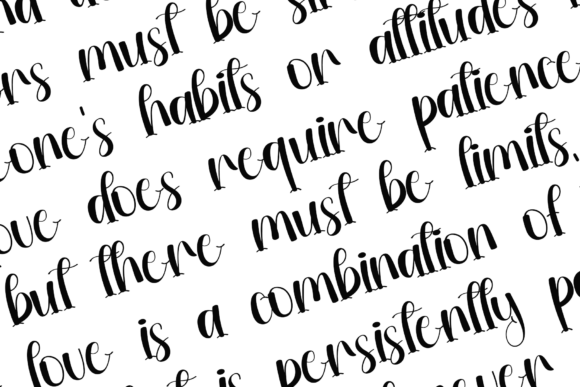 must be
must be
habits or attitudes
does require patience
but there must be limits.
love is a combination of
is persistently